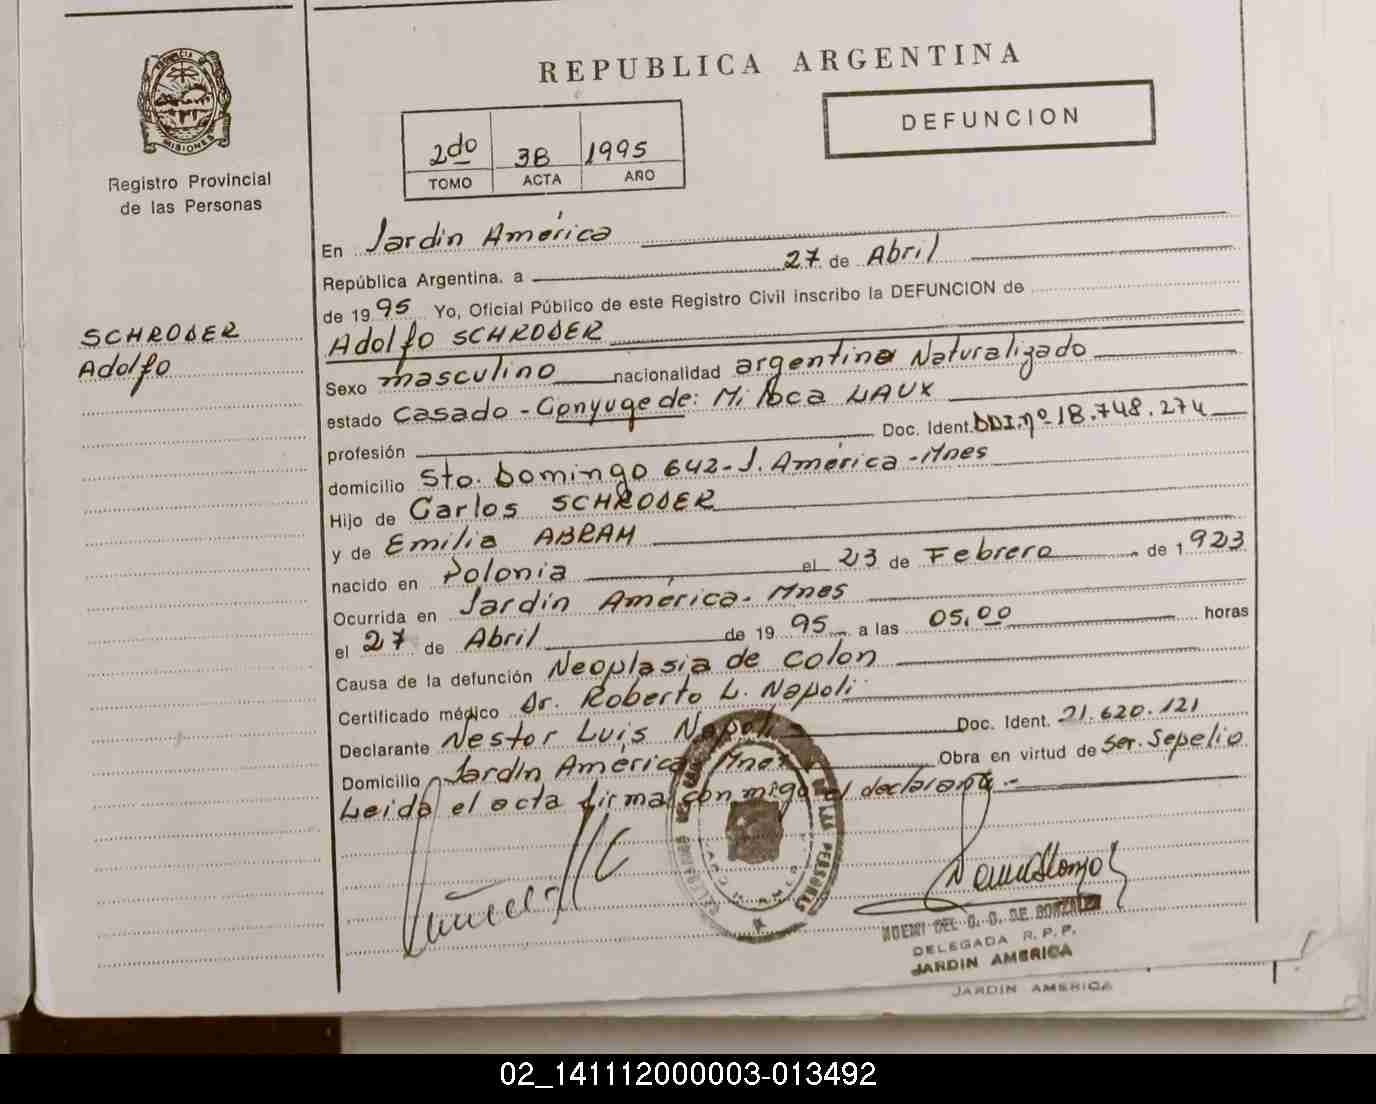 REPUBLICA ARGENTINA
PROVINCIA DE
MISIONES
Registro Provincial
de las Personas
2do 38 1995
TOMO ACTA AÑO
DEFUNCION
SCHRODER
Adolfo
En Jardin América
República Argentina, a 27 de Abril
de 1995 Yo, Oficial Público de este Registro Civil inscribo la DEFUNCION de
Adolfo SCHRODER
Sexo masculino nacionalidad argentino Naturalizado
estado Casado - Conyuge de: Miloca LAUX
profesión Doc. Ident. DDI. nº 18.748.274
domicilio Sto. Domingo 642 - J. América - Mnes
Hijo de Carlos SCHRODER
y de Emilia ABRAM
nacido en Polonia el 23 de Febrero de 1923
Ocurrida en Jardin América - Mnes
el 27 de Abril de 1995 a las 05,00 horas
Causa de la defunción Neoplasia de colon
Certificado médico Dr. Roberto L. Napoli
Declarante Nestor Luis Napoli Doc. Ident. 21.620.121
Domicilio Jardin America Mnes Obra en virtud de Ser. Sepelio
Leida el acta firma conmigo el declarante.-
DE LAS PERSONAS
NOEMI DEL C. G. DE GONZALEZ
DELEGADA R. P. P.
JARDIN AMERICA
JARDIN AMERICA
02_141112000003-013492